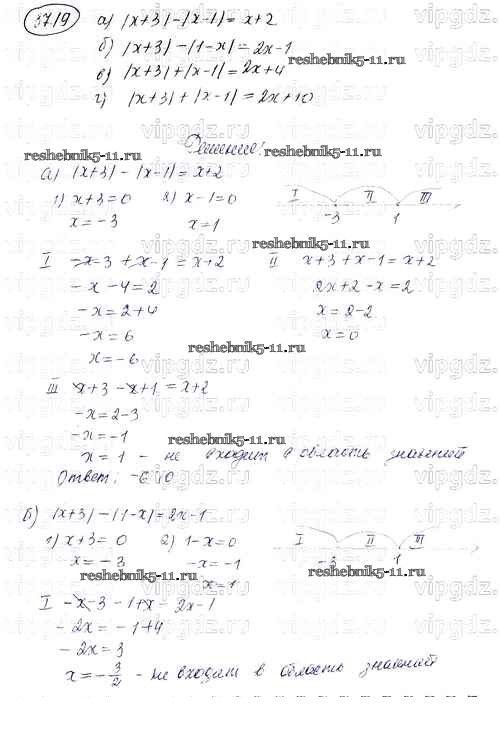 3719 а) |x+3|-|x-1|=x+2
б) |x+3|-|1-x|=2x-1
в) |x+3|+|x-1|=2x+4
г) |x+3|+|x-1|=2x+10
Решение:
reshebnik5-11.ru reshebnik5-11.ru
а) |x+3|-|x-1|=x+2
1) x+3=0 2) x-1=0 I II III
x=-3 x=1 -3 1
reshebnik5-11.ru
I -x-3+x-1=x+2 II x+3+x-1=x+2
-x-4=2 2x+2-x=2
-x=2+4 x=2-2
-x=6 x=0
x=-6
reshebnik5-11.ru
III x+3-x+1=x+2
-x=2-3
-x=-1
reshebnik5-11.ru
x=1 - не входит в область значений
Ответ: -6 и 0
б) |x+3|-|1-x|=2x-1
1) x+3=0 2) 1-x=0 I II III
x=-3 -x=-1 -3 1
reshebnik5-11.ru reshebnik5-11.ru
x=1
I -x-3-1+x=2x-1
-2x=-1+4
-2x=3
x=-3/2 - не входит в область значений
vipgdz.ru